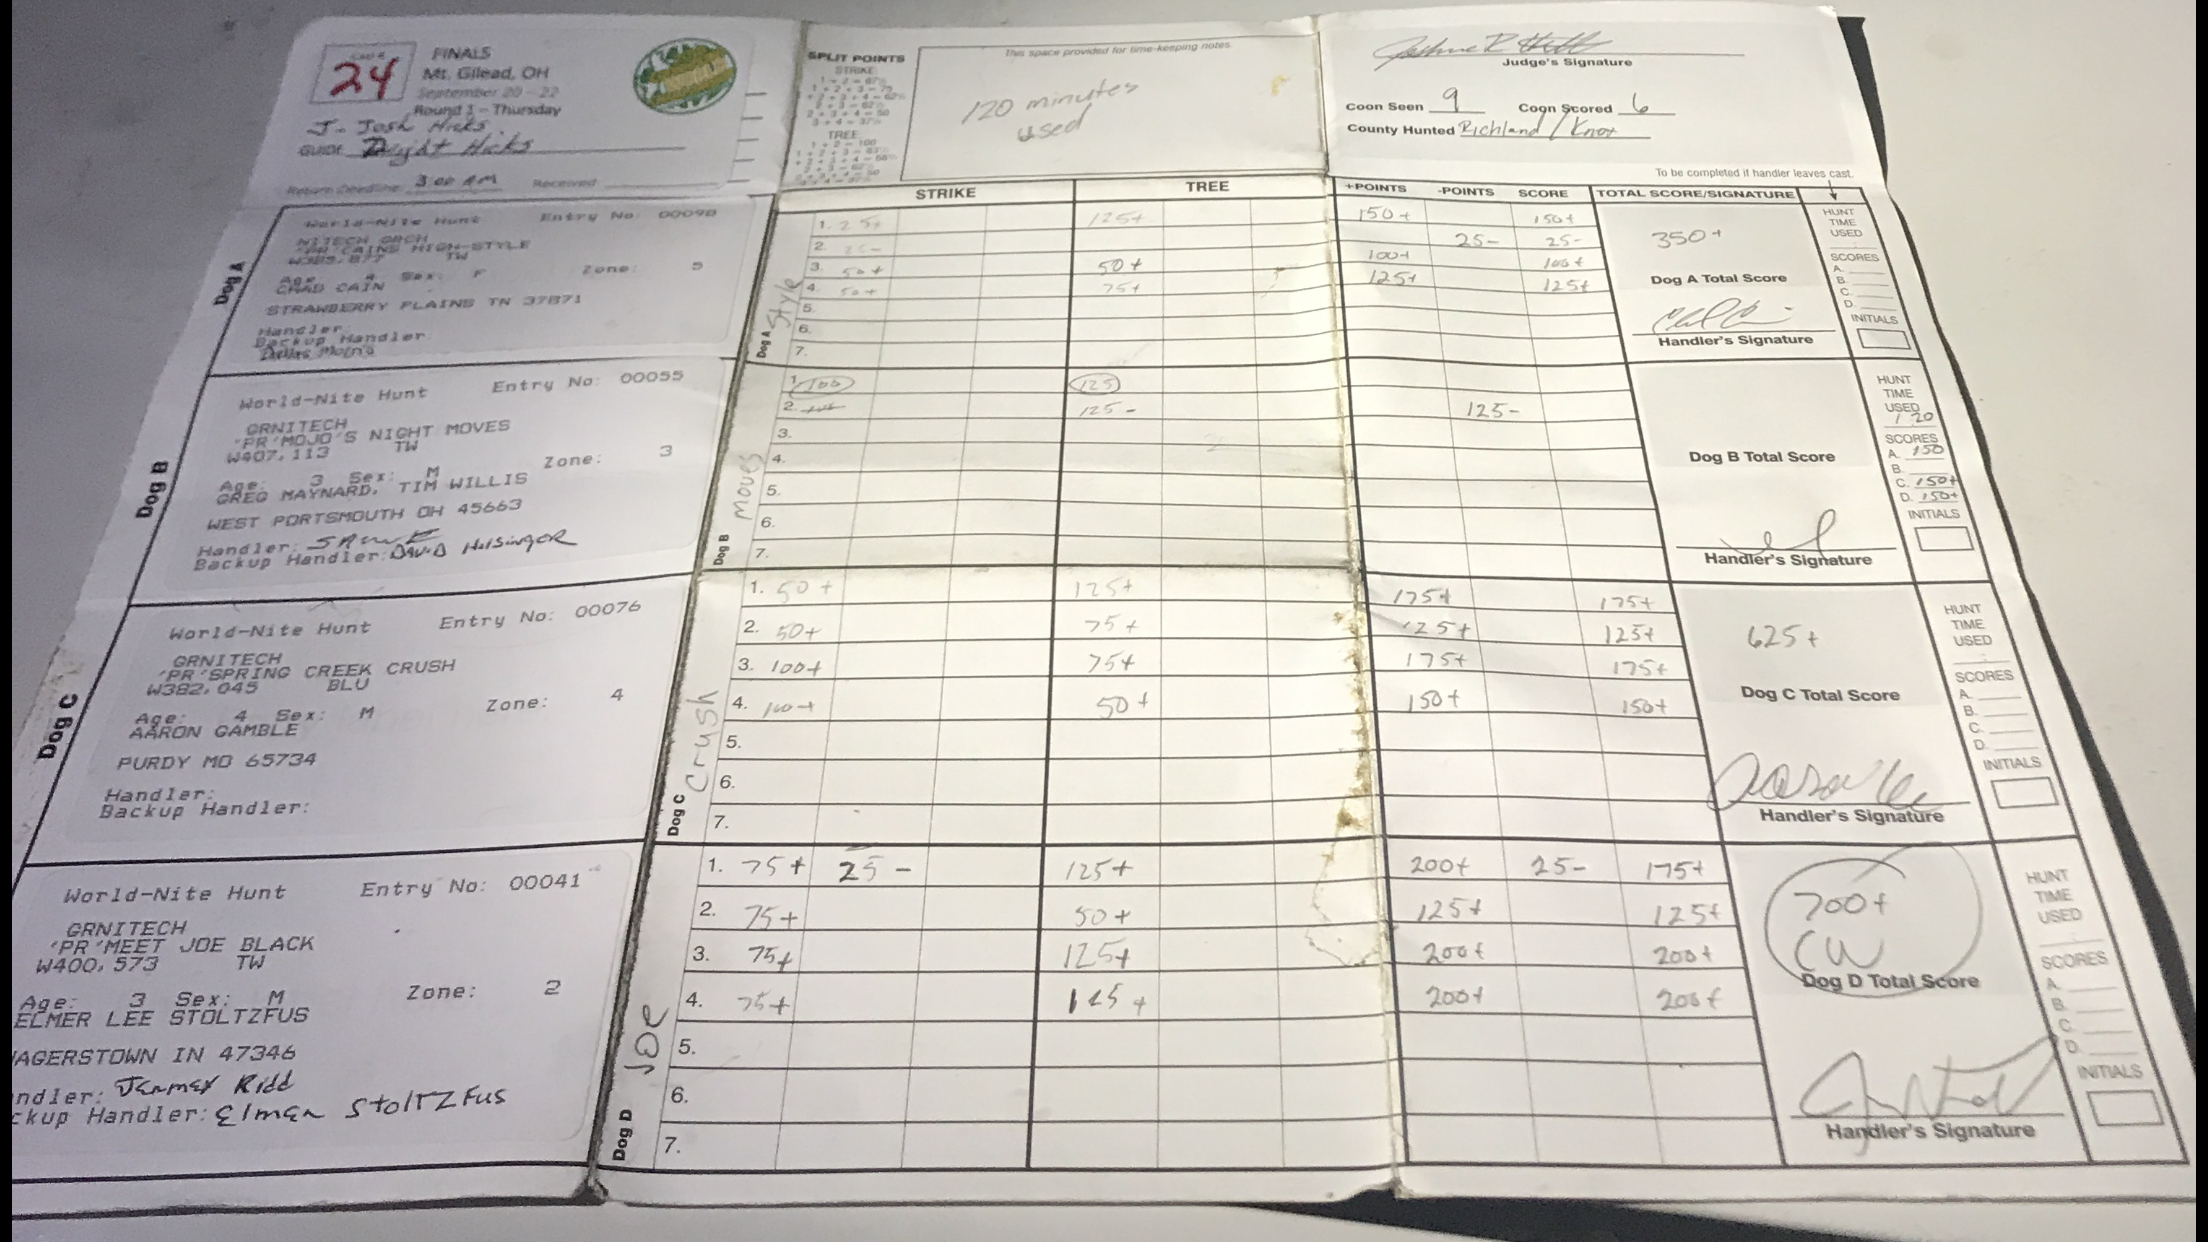 24
FINALS
Mt. Gilead, OH
September 20-22
Round 1 - Thursday
J- Josh Hicks
GUIDE Dwight Hicks
Return Deadline 3:00 AM Received
SPLIT POINTS
STRIKE:
TREE:
This space provided for time-keeping notes.
120 minutes
used
Judge's Signature
Coon Seen 9 Coon Scored 6
County Hunted Richland / Knox
To be completed if handler leaves cast.
STRIKE TREE +POINTS -POINTS SCORE TOTAL SCORE/SIGNATURE
Dog A
World-Nite Hunt Entry No: 00098
'PR'CAINS HIGH-STYLE
TW
Age: 4 Sex: F Zone: 5
CHAD CAIN
STRAWBERRY PLAINS TN 37871
Handler:
Backup Handler:
Dog A Style
1. 25+ 125+ 150+ 150+
2. 25- 25- 25-
3. 50+ 50+ 100+ 100+
4. 50+ 75+ 125+ 125+
5.
6.
7.
350+
Dog A Total Score
Handler's Signature
HUNT
TIME
USED
SCORES
A.
B.
C.
D.
INITIALS
Dog B
World-Nite Hunt Entry No: 00055
GRNITECH
'PR'MOJO'S NIGHT MOVES
W407,113 TW
Age: 3 Sex: M Zone: 3
GREG MAYNARD, TIM WILLIS
WEST PORTSMOUTH OH 45663
Handler: SAME
Backup Handler: DAVID Holsinger
Dog B Moves
1. 100 125
2. 125- 125-
3.
4.
5.
6.
7.
Dog B Total Score
Handler's Signature
HUNT
TIME
USED
1 20
SCORES
A. 150
B.
C. 150+
D. 150+
INITIALS
Dog C
World-Nite Hunt Entry No: 00076
GRNITECH
'PR'SPRING CREEK CRUSH
W382,045 BLU
Age: 4 Sex: M Zone: 4
AARON GAMBLE
PURDY MO 65734
Handler:
Backup Handler:
Dog C Crush
1. 50+ 125+ 175+ 175+
2. 50+ 75+ 125+ 125+
3. 100+ 75+ 175+ 175+
4. 100+ 50+ 150+ 150+
5.
6.
7.
625+
Dog C Total Score
Handler's Signature
HUNT
TIME
USED
SCORES
A.
B.
C.
D.
INITIALS
World-Nite Hunt Entry No: 00041
GRNITECH
'PR'MEET JOE BLACK
W400,573 TW
Age: 3 Sex: M Zone: 2
ELMER LEE STOLTZFUS
AGERSTOWN IN 47346
ndler:
ckup Handler: Elmer Stoltzfus
Dog D Joe
1. 75+ 25- 125+ 200+ 25- 175+
2. 75+ 50+ 125+ 125+
3. 75+ 125+ 200+ 200+
4. 75+ 125+ 200+ 200+
5.
6.
7.
700+
CW
Dog D Total Score
Handler's Signature
HUNT
TIME
USED
SCORES
A.
B.
C.
D.
INITIALS